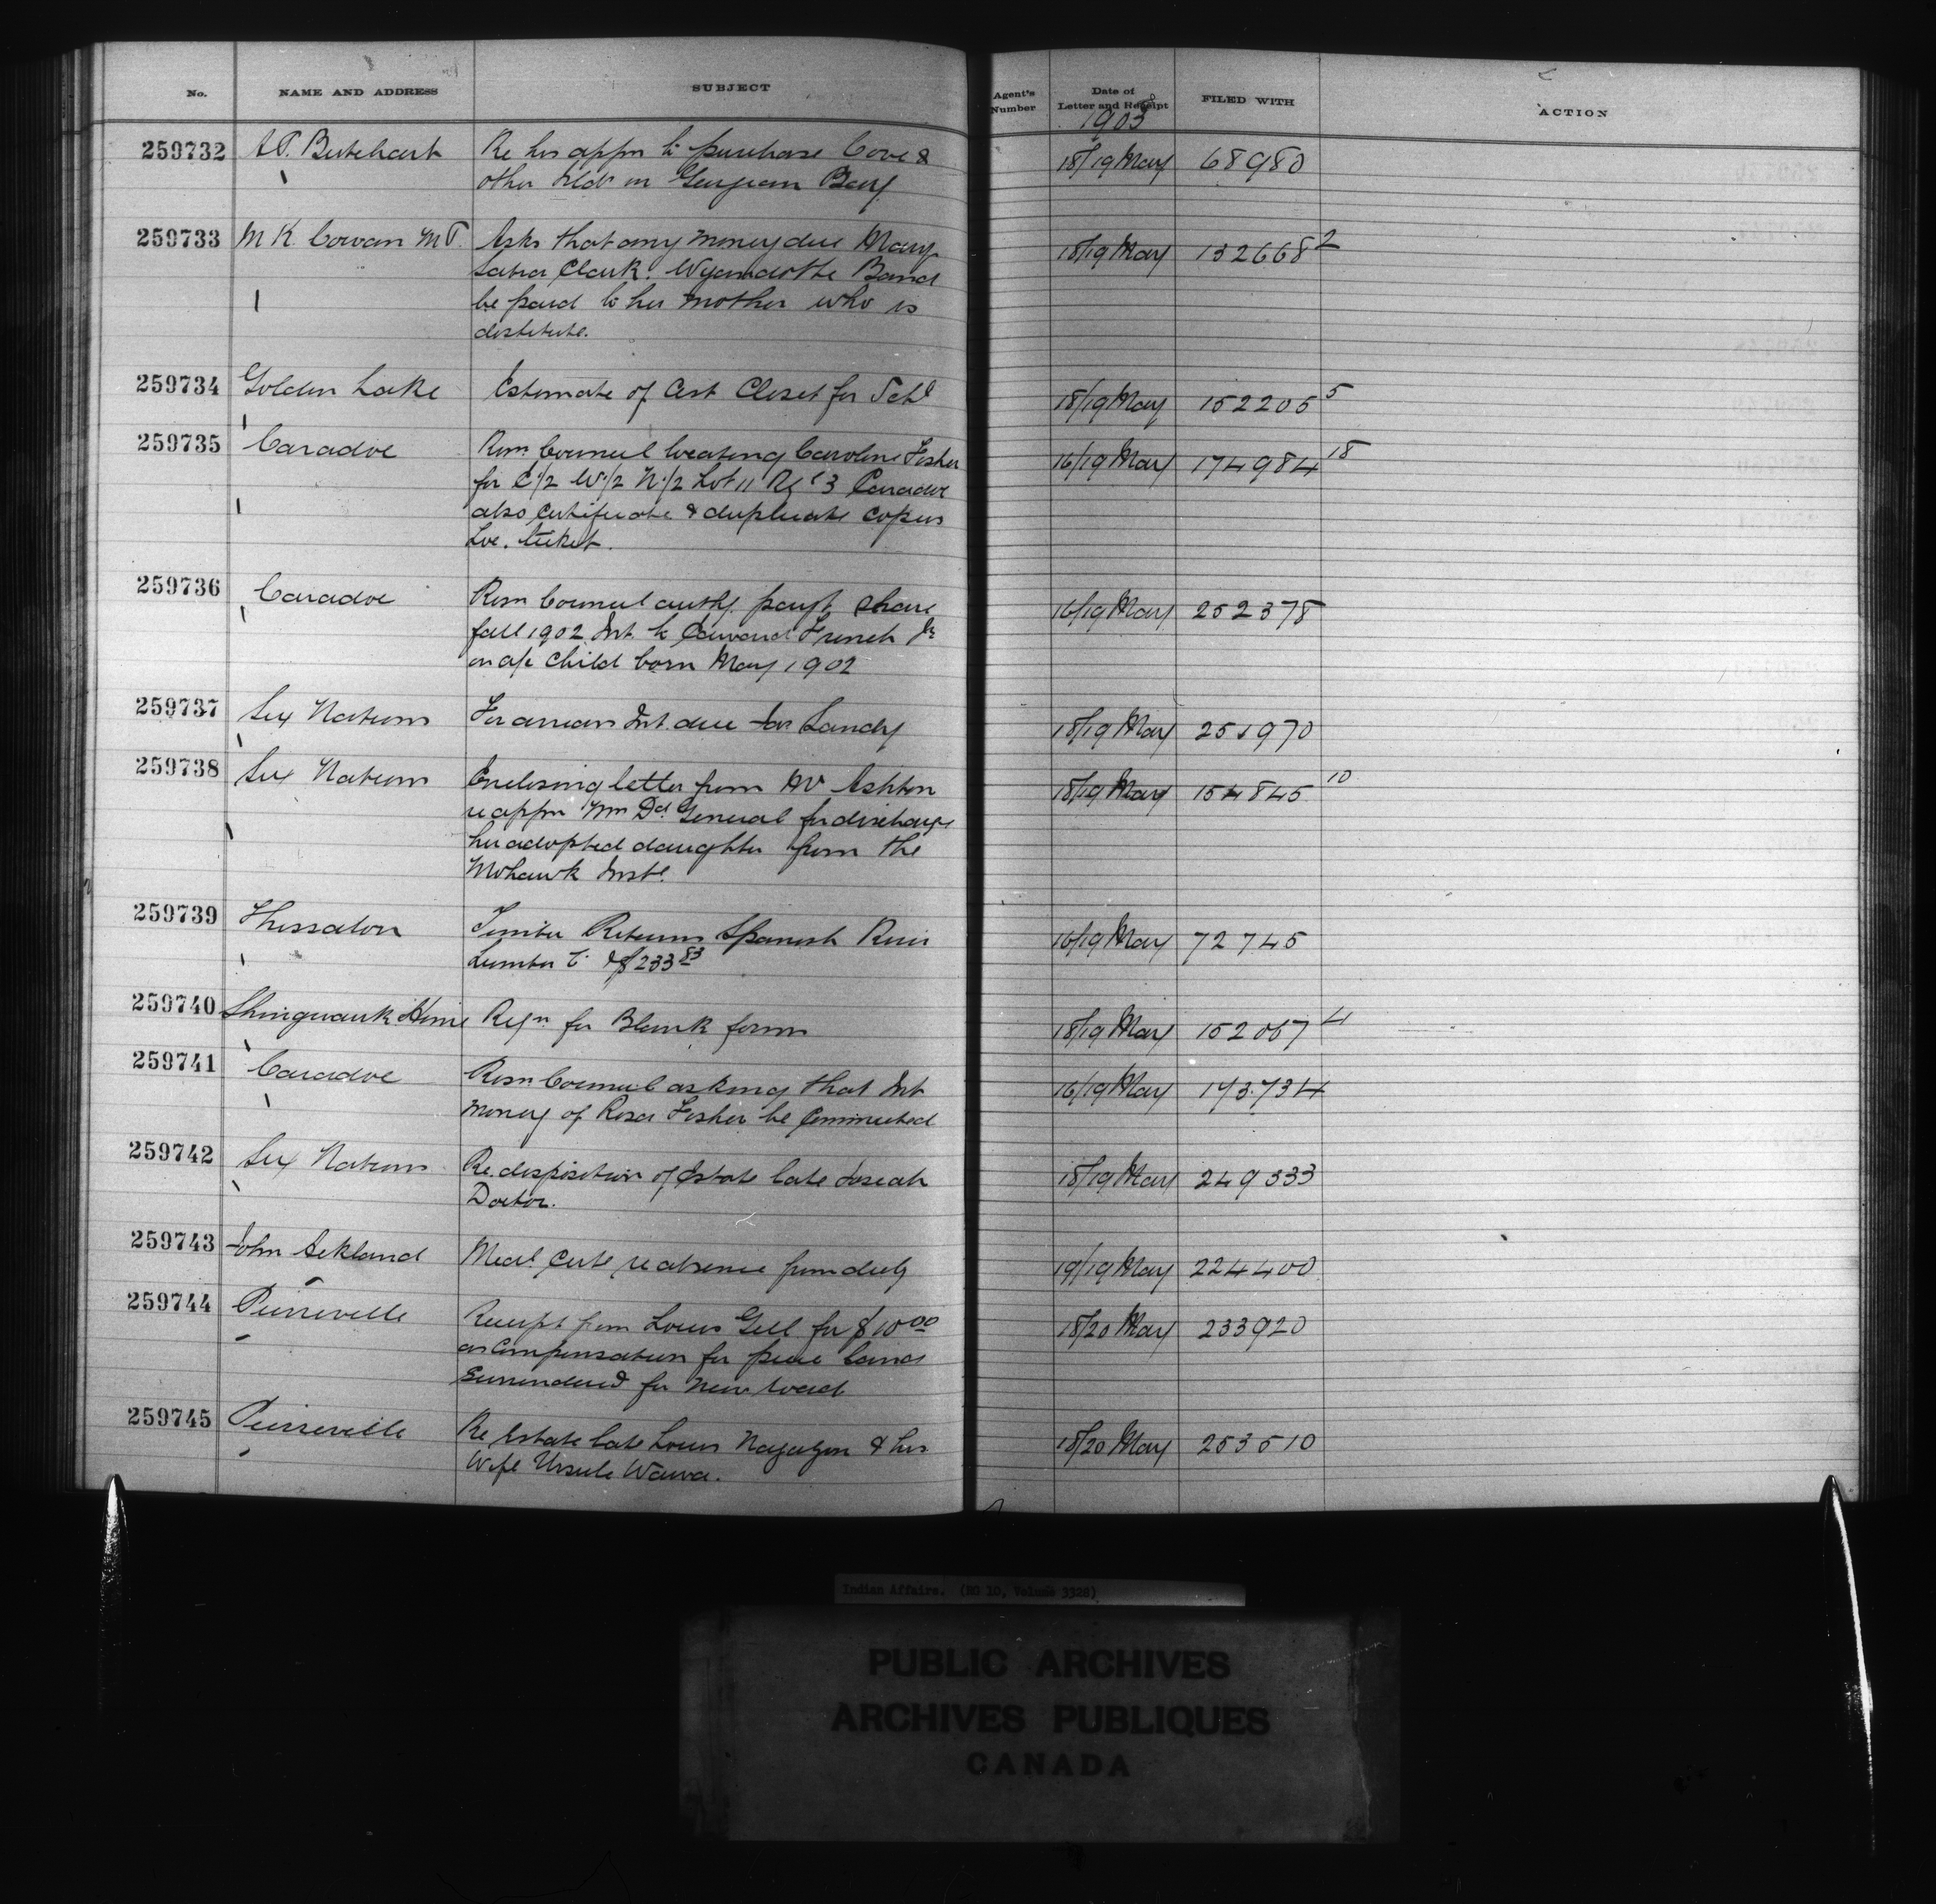 No. NAME AND ADDRESS SUBJECT Agent's Number Date of Letter and Receipt FILED WITH ACTION
1903
259732 A.P. Butchart Re his appn to purchase Cove & 18/19 May 68980
other Islds in Georgian Bay
259733 M K. Cowan M P. Asks that any money due Mary 18/19 May 132668 2
Clark. Wyandotte Band
be paid to her mother who is
destitute.
259734 Golden Lake Estimate of Cost Closet for Schl 18/19 May 152205 5
259735 Caradoc Resn Council locating Caroline Fisher 16/19 May 174984 18
for E 1/2 W 1/2 N 1/2 Lot 11 Rge 3 Caradoc
also Certificate & duplicate copies
Loc. ticket.
259736 Caradoc Resn Council authg. payt share 16/19 May 252378
fall 1902 Int. to Edward French Jr
on a/c child born May 1902
259737 Six Nations For arrears Int. due Jas Sandy 18/19 May 251970
259738 Six Nations Enclosing letter from Ashton 18/19 May 154845 10
re appn General for discharge
her adopted daughter from the
Mohawk Inste.
259739 Thessalon Timber Returns Spanish River 16/19 May 72745
Lumber Co & $233 83
259740 Shingwauk Home Reqn for Blank forms 18/19 May 152067 4
259741 Caradoc Resn Council asking that Int 16/19 May 173734
money of Rosa Fisher be Commuted
259742 Six Nations Re. disposition of Estate late Josiah 18/19 May 249333
Doctor.
259743 John Ackland Medl Certe re absence from duty 19/19 May 224400
259744 Pierreville Receipt from Louis Gill for $10 00 18/20 May 233920
as Compensation for piece land
Surrendered for new road
259745 Pierreville Re Estate late Louis & his 18/20 May 253510
Wife Ursule Wawa.
Indian Affairs. (RG 10, Volume 3328)
PUBLIC ARCHIVES
ARCHIVES PUBLIQUES
CANADA